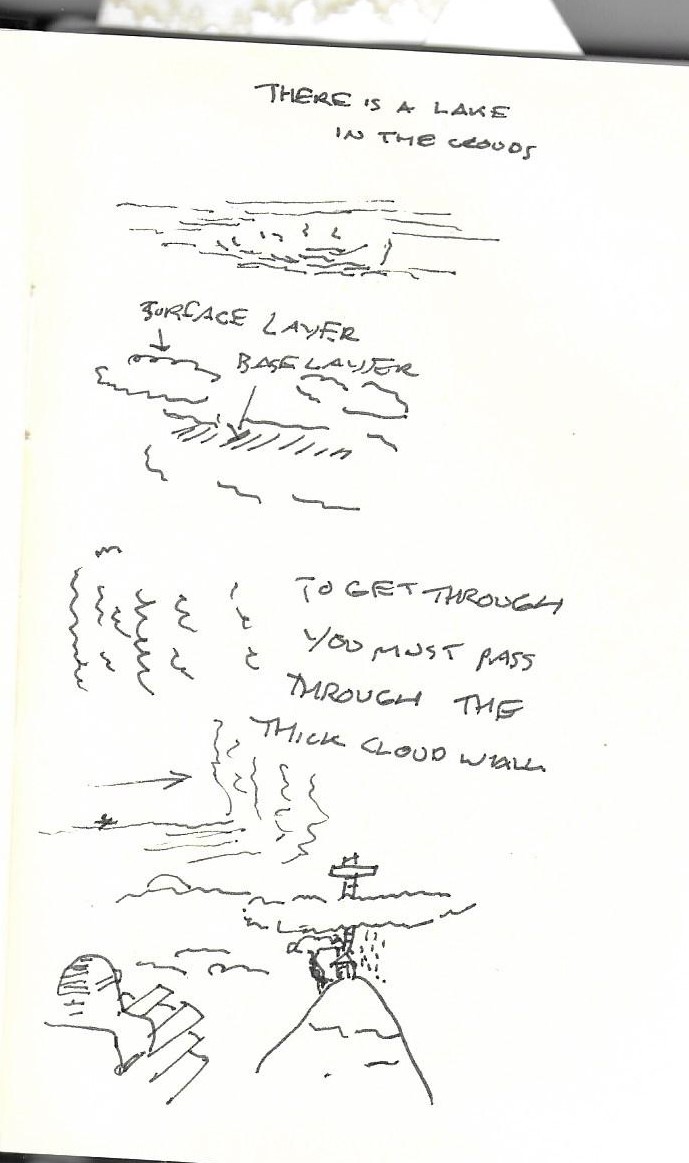 THERE IS A LAKE
IN THE CLOUDS
SURFACE LAYER
BASE LAYER
TO GET THROUGH
YOU MUST PASS
THROUGH THE
THICK CLOUD WALL